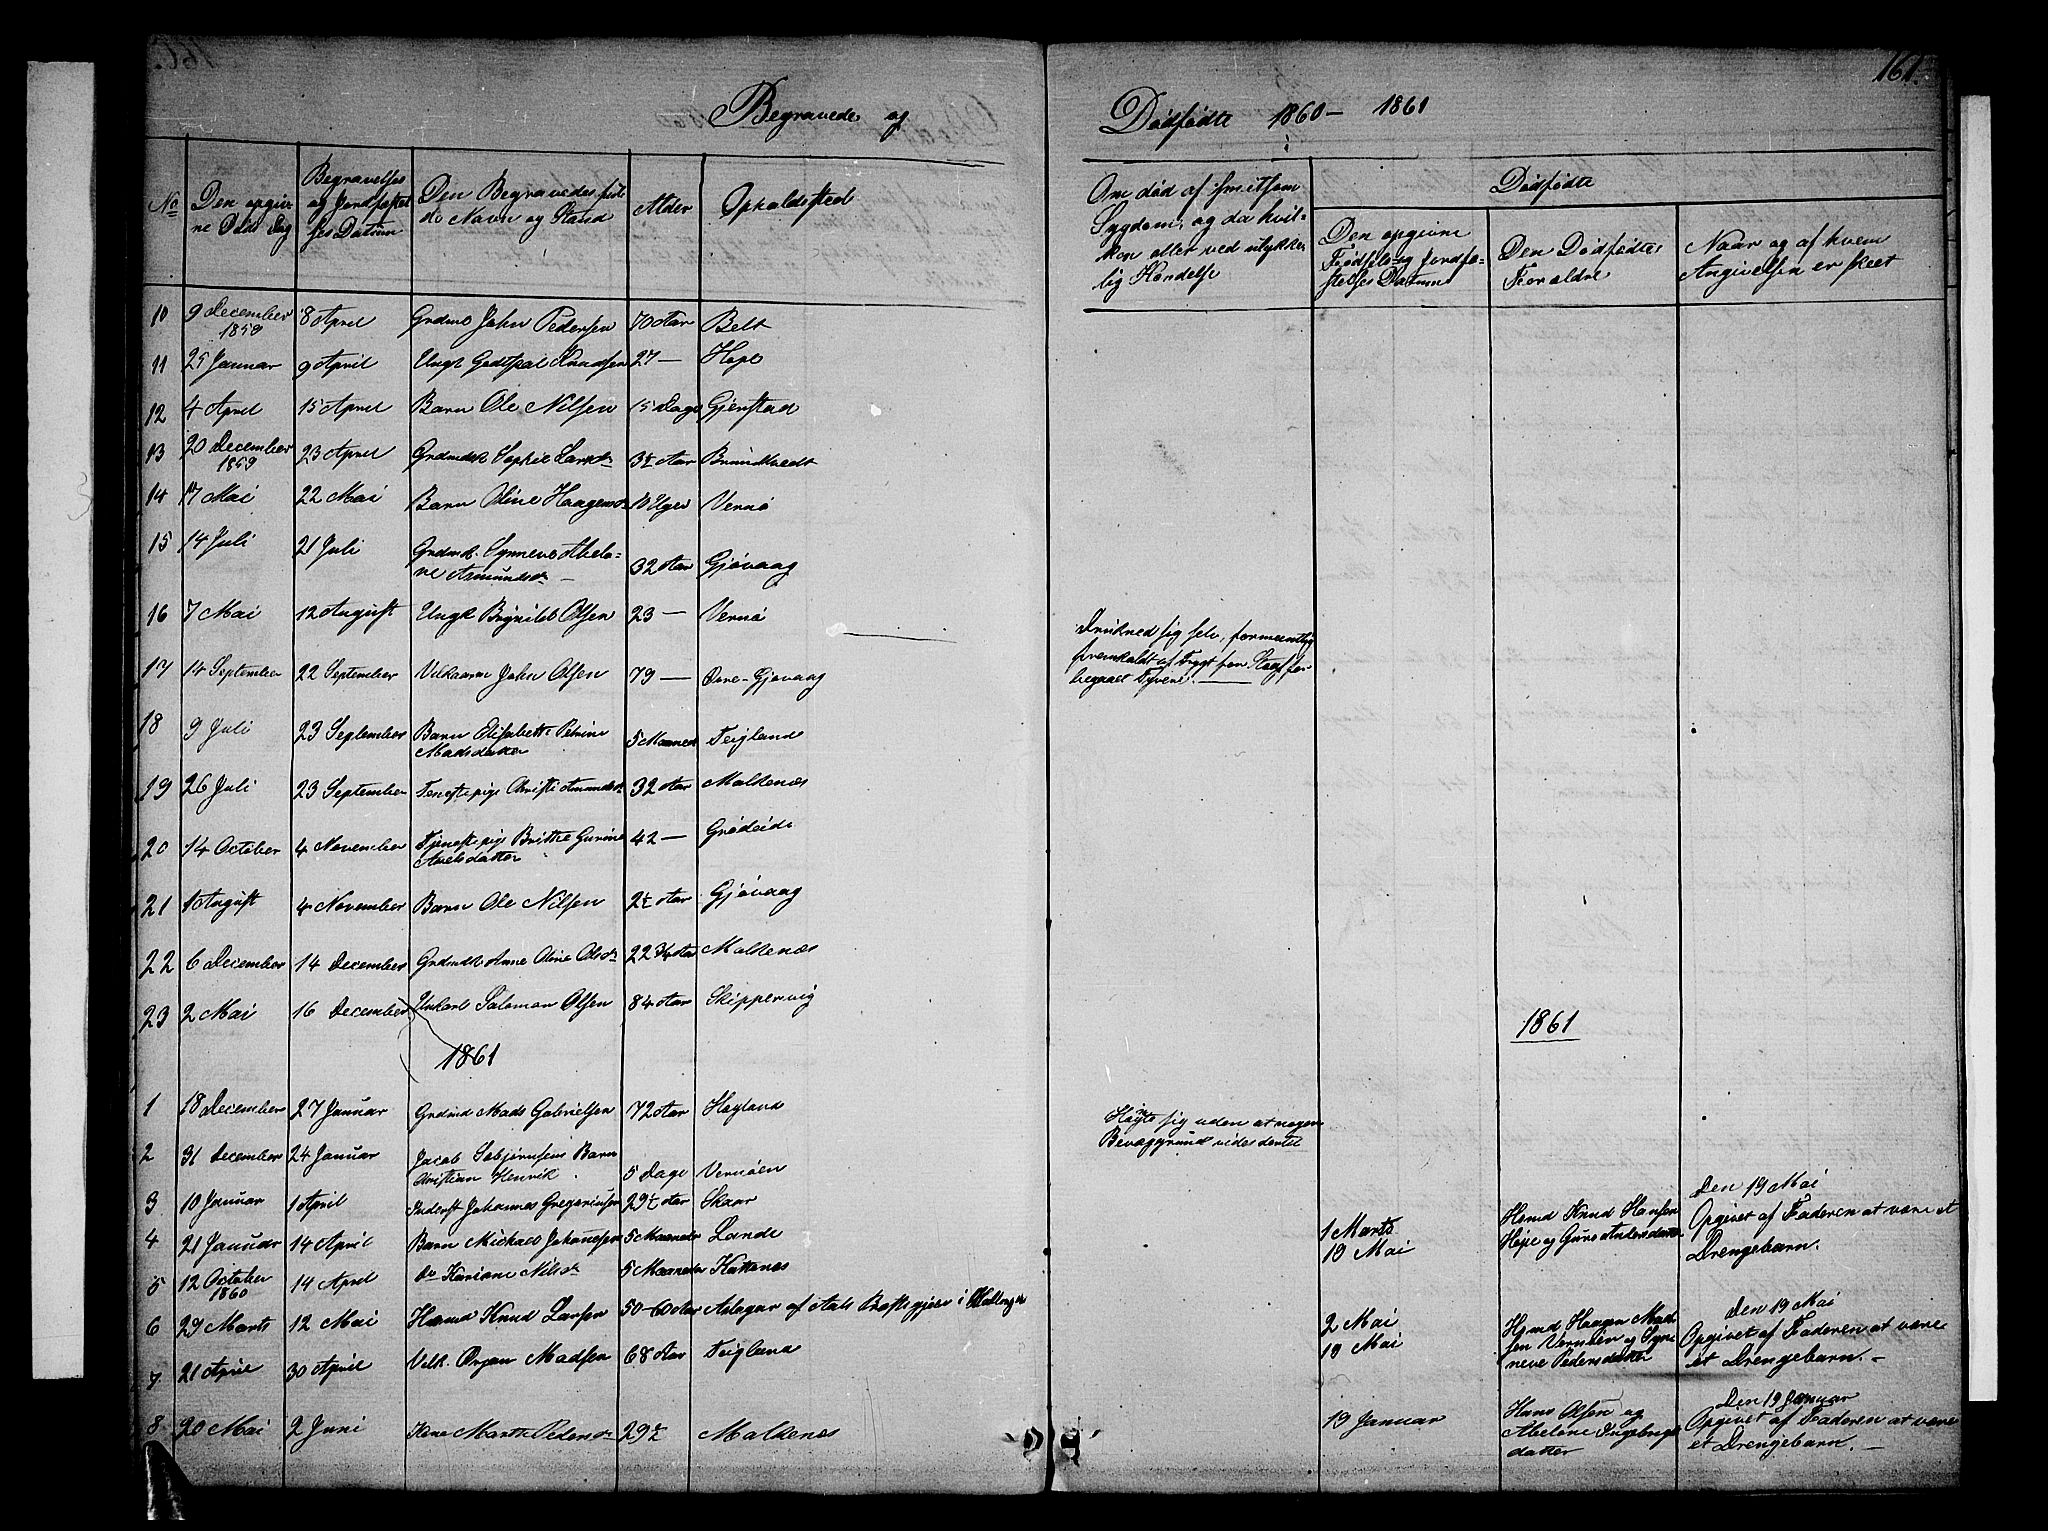 161.
Begravede og Dødfødte 1860 – 1861
No
Den opgivne Døds Dag
Begravelses og Jordfæstelses Datum
Den Begravedes fulde Navn og Stand
Alder
Opholdssted
Om død af smitsom Sygdom, og da hvilken eller ved ulykkelig Hændelse
Dødfødte
Den opgivne Fødsels- og Jordfæstelses Datum
Den Dødfødtes Forældre
Naar og af hvem Angivelsen er skeet
10 9 December 1859 8 April Grdmd John Pedersen 70 Aar Belt
11 25 Januar 9 April Ungk Godtskal Knudsen 27 — Hope
12 4 April 15 April Barn Ole Nilsen 15 Dage Gjerstad
13 20 December 1859 23 April Grdmdk Sophie Larsd. Aar
14 17 Mai 22 Mai Barn Oline Haagensd. 10 Uger Vernø
15 14 Juli 21 Juli Grdmk. Synneve Abelone Asmundsd. — 32 Aar Gjøvaag
16 7 Mai 12 August Ungk Brynild Olsen 23 — Vernø
Drukned sig selv, formeentlig
fremkaldt af Frygt for Straf for
begaaet Tyveri. —
17 14 September 22 September John Olsen 79 — Øvre-Gjøvaag
18 9 Juli 23 September Barn Elisabeth Petrine Madsdatter 5 Maaneder Teigland
19 26 Juli 23 September Tjenestepige Christi Amundsd. 32 Aar Malkenæs
20 14 October 4 November Tjenestepige Britte Gurine Axelsdatter 42 — Grødeide
21 1 August 4 November Barn Ole Nilsen 2½ Aar Gjøvaag
22 6 December 14 December Grdmdk Anne Oline Olsd. 22 3/4 Aar Malkenæs
23 2 Mai 16 December Salomon Olsen 84 Aar Skippervig
1861
1861
1 18 December 27 Januar Grdmd Mads Gabrielsen 72 Aar Høyland
Hængte sig uden at nogen
Bevæggrund vides dertil
2 31 December 24 Januar Jacob Barn Christian Henrik 5 Dage Vernøen
3 10 Januar 1 April Inderst Johannes Gregoriusen 29½ Aar Skaar
4 21 Januar 14 April Barn Michael Johannesen 5 Maaneder Lande
1 Marts
19 Mai
Hsmd Knud Hansen
Hope og Guro Andersdatter
Den 19 Mai
Opgivet af Faderen at være et
Drengebarn.
5 12 October 1860 14 April do Kariane Nilsd. 5 Maaneder Kattenæs
6 29 Marts 12 Mai Hsmd Knud Larsen 50-60 Aar af Aals Præstegjeld i
2 Mai
19 Mai
Hsmd Haagen Madsen
Vernøen og Synneve
Pedersdatter
Den 19 Mai
Opgivet af Faderen at være
et Drengebarn. —
7 21 April 30 April Ørjan Madsen 68 Aar Teigland
8 20 Mai 2 Juni Kone Marthe Pedersd. 29½ Malkenæs
19 Januar
Hans Olsen og
Abelone Ingebrigtsdatter
Den 19 Januar
Opgivet af Faderen at være
et Drengebarn. —